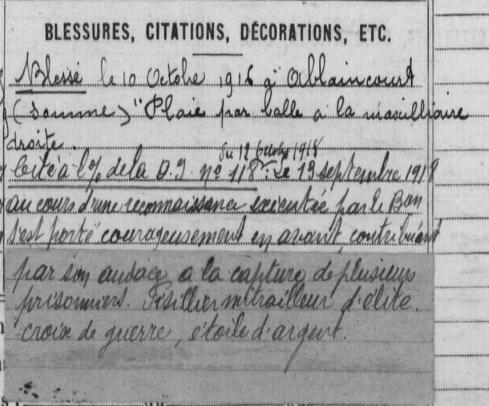 BLESSURES, CITATIONS, DÉCORATIONS, ETC.
Blessé le 10 Octobre 1916 à Ablaincourt
(Somme) "Plaie par balle à la maxilliaire
droite.
du 12 Octobre 1918
Cité à l'O/ de la D.I. n° 118. Le 13 septembre 1918
au cours d'une reconnaissance exécutée par le Bon
s'est porté courageusement en avant, contribuant
par son audace, à la capture de plusieurs
prisonniers. Fusillier mitrailleur d'élite.
croix de guerre, étoile d'argent.